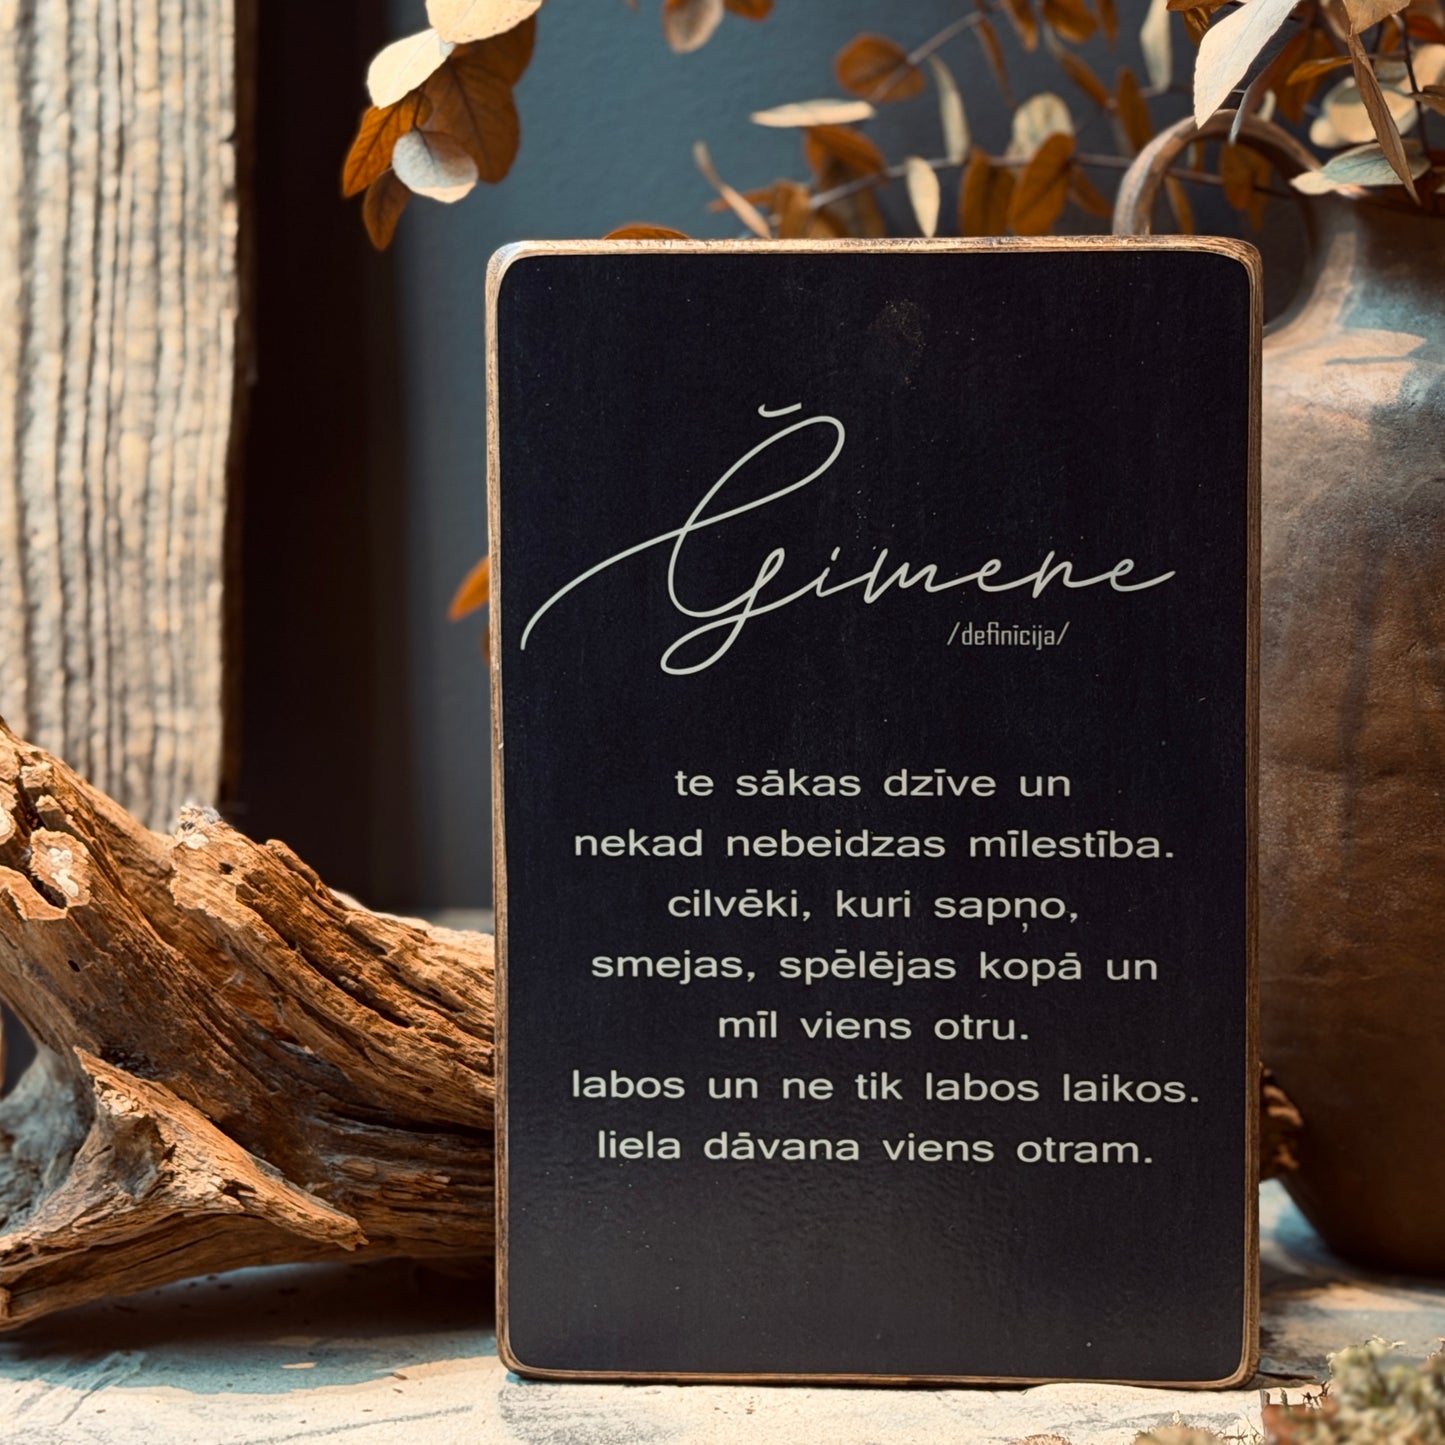 Ģimene
/definīcija/
te sākas dzīve un
nekad nebeidzas mīlestība.
cilvēki, kuri sapņo,
smejas, spēlējas kopā un
mīl viens otru.
labos un ne tik labos laikos.
liela dāvana viens otram.